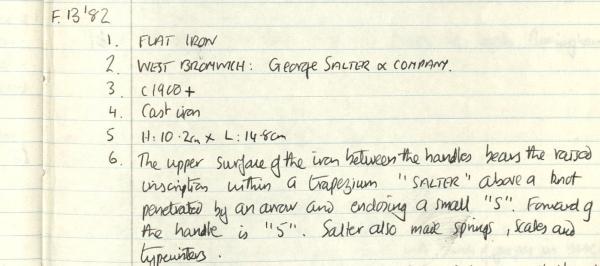 F.13'82
1. FLAT IRON
2. WEST BROMWICH: George SALTER & COMPANY.
3. c1900+
4. Cast iron
5 H: 10.2cm x L: 14.8cm
6. The upper surface of the iron between the handles bears the raised
inscription within a trapezium "SALTER" above a knot
penetrated by an arrow and enclosing a small "S". Forward of
the handle is "5". Salter also made springs, scales and
typewriters.